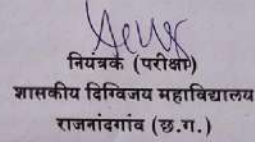 नियंत्रक (परीक्षा)
शासकीय दिग्विजय महाविद्यालय
राजनांदगांव (छ.ग.)